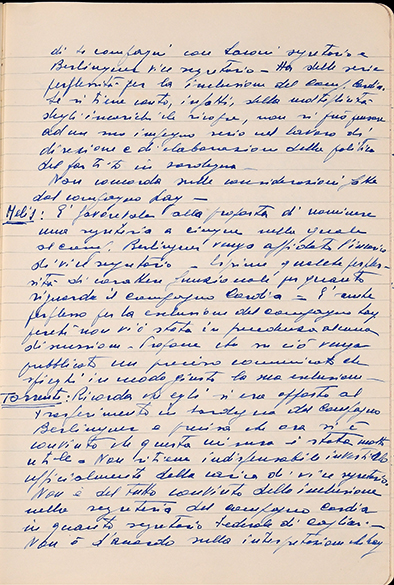 di 5 compagni con Laconi segretario e
Berlinguer vice segretario - Ha delle serie
perplessità per la inclusione del comp. Cardia.
Se si tiene conto, infatti, della molteplicità
degli incarichi che ricopre, non si può pensare
ad un suo impegno serio nel lavoro di
direzione e di elaborazione della politica
del partito in Sardegna -
Non concorda sulle considerazioni fatte
dal compagno Lay -
Melis: E' favorevole alla proposta di nominare
una segreteria a cinque nella quale
al comp. Berlinguer venga affidato l'incarico
di vice segretario - Esprime qualche perples-
sità di carattere funzionale per quanto
riguarda il compagno Cardia - E' anche
perplesso per la esclusione del compagno Lay
perché non vi è stata in precedenza alcuna
discussione - Propone che su ciò venga
pubblicato un preciso comunicato che
spieghi in modo giusto la sua esclusione -
Torrente: Ricorda che egli si era opposto al
trasferimento in Sardegna del compagno
Berlinguer e precisa che ora si è
convinto che questa misura è stata molto
utile - Non ritiene indispensabile investirlo
ufficialmente della carica di vice segretario
Non è del tutto convinto della inclusione
nella segreteria del compagno Cardia
in quanto segretario federale di Cagliari -
Non è d'accordo sulla interpretazione che Lay